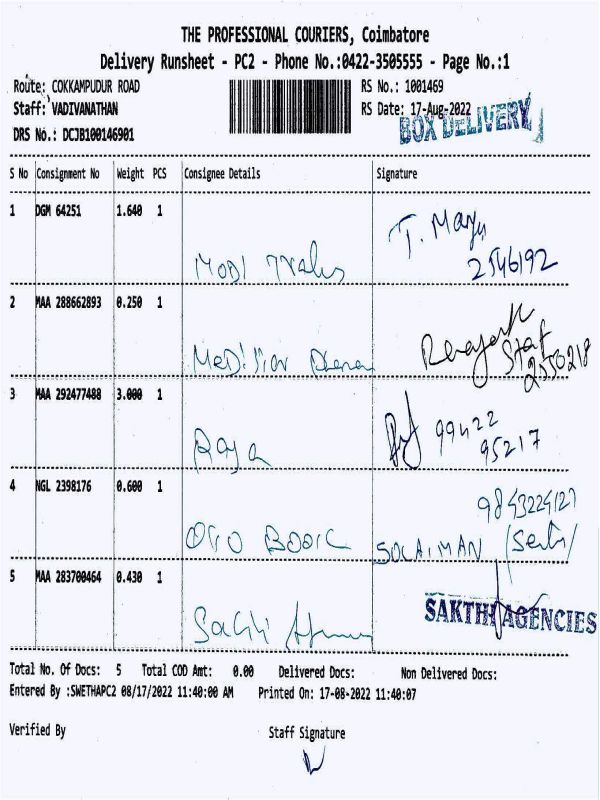 THE PROFESSIONAL COURIERS, Coimbatore
Delivery Runsheet - PC2 - Phone No.:0422-3505555 - Page No.:1
Route: COKKAMPUDUR ROAD RS No.: 1001469
Staff: VADIVANATHAN RS Date: 17-Aug-2022
BOX DELIVERY
DRS No.: DCJB100146901
S No Consignment No Weight PCS Consignee Details Signature
1 DGM 64251 1.640 1
T. Mary
MODI 2546192
2 MAA 288662893 0.250 1
Staf
2550218
3 MAA 292477488 3.000 1
99422
Raja 95217
4 NGL 2398176 0.600 1
OTTO BOOK SOLAIMAN
5 MAA 283700464 0.430 1
SAKTHI AGENCIES
Sakthi
Total No. Of Docs: 5 Total COD Amt: 0.00 Delivered Docs: Non Delivered Docs:
Entered By :SWETHAPC2 08/17/2022 11:40:00 AM Printed On: 17-08-2022 11:40:07
Verified By Staff Signature